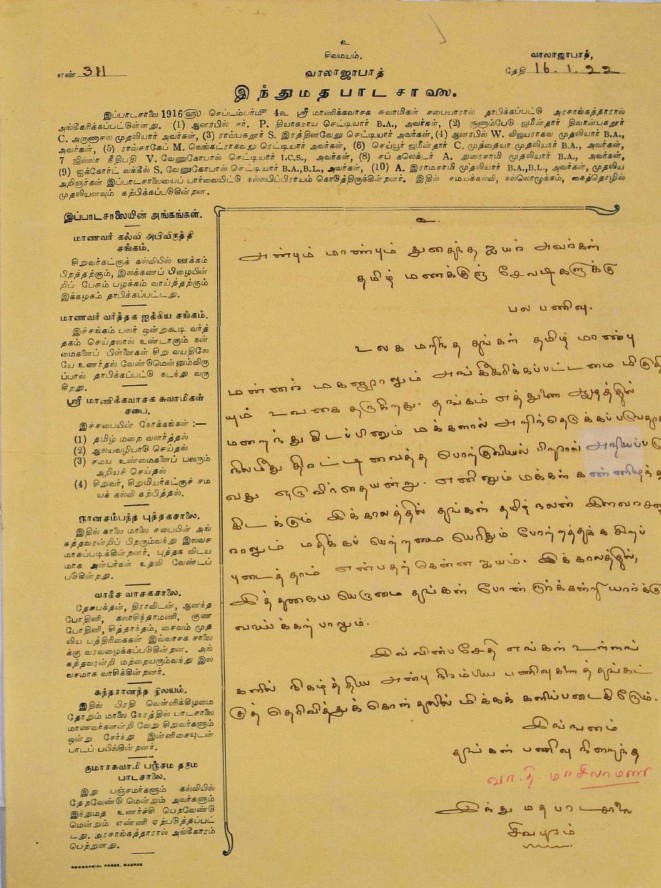 உ
சிவமயம்.
எண் 311
வாலாஜாபாத்
வாலாஜாபாத்,
தேதி 16.1.22
இந்துமதபாடசாலை.
இப்பாடசாலை 1916 ௵ செப்டம்பர்௴ 4௳ ஸ்ரீ மாணிக்கவாசக சுவாமிகள் சபையாரால் தாபிக்கப்பட்டு அரசாங்கத்தாரால்
அங்கீகரிக்கப்பட்டுள்ளது. (1) ஆனரபில் சர். P. தியாகராய செட்டியார் B.A., அவர்கள், (2) சூளும்பேடு ஜமீன்தார் திவான்பகதூர்
C. அருணாசல முதலியார் அவர்கள், (3) ராவ்பகதூர் S. இரத்தினவேலு செட்டியார் அவர்கள், (4) ஆனரபில் W. விஜயராகவ முதலியார் B.A.,
அவர்கள், (5) ராவ்சாகேப் M. வெங்கட்ராகவலு ரெட்டியார் அவர்கள், (6) செய்யூர் ஜமீன்தார் C. முத்தையா முதலியார் B.A., அவர்கள்,
7 ஜில்லா நீதிபதி V. வேணுகோபால் செட்டியார் I.C.S., அவர்கள், (8) சப் கலெக்டர் A. முதலியார் B.A., அவர்கள்,
(9) ஐக்கோர்ட் வக்கீல் S. வேணுகோபால் செட்டியார் B.A.,B.L., அவர்கள், (10) A. இராமசாமி முதலியார் B.A.,B.L., அவர்கள், முதலிய
அறிஞர்கள் இப்பாடசாலையைப் பார்வையிட்டு நல்லபிப்பிராயம் கொடுத்திருக்கின்றனர். இதில் சமயக்கல்வி, கைத்தொழில்
முதலியனவும் கற்பிக்கப்படுகின்றன.
இப்பாடசாலையின் அங்கங்கள்.
மாணவர் கல்வி அபிவிருத்தி
சங்கம்.
சிறுவர்கட்குக் கல்வியில் ஊக்கம்
பிறத்தற்கும், இலக்கணப் பிழையின்
றிப் பேசும் பழக்கம் வாய்த்தற்கும்
இக்கழகம் தாபிக்கப்பட்டது.
மாணவர் வர்த்தக ஐக்கிய சங்கம்.
இச்சங்கம் பலர் ஒன்றுகூடி வர்த்
தகம் செய்தலால் உண்டாகும் நன்
மைகளைப் பிள்ளைகள் சிறு வயதிலே
யே உணர்தல் வேண்டுமென்னும்விரு
ப்பால் தாபிக்கப்பட்டு நடந்து வரு
கிறது.
ஸ்ரீ மாணிக்கவாசக சுவாமிகள்
சபை.
இச்சபையின் நோக்கங்கள் :—
(1) தமிழ் மறை வளர்த்தல்
(2) ஆலயவழிபாடு செய்தல்
(3) சமய உண்மைகளைப் பலரும்
அறியச் செய்தல்
(4) சிறுவர், சிறுமியர்கட்குச் சம
யக் கல்வி கற்பித்தல்.
ஞானசம்பந்த புத்தகசாலை.
இதில் காலை மாலை சபையின் அங்
கத்தவரன்றிப் பிறரும்வந்து இலவச
மாகப்படிக்கின்றனர். புத்தக விடய
மாக அன்பர்கள் உதவி வேண்டப்
படுகின்றது.
வாகீச வாசகசாலை.
தேசபக்தன், திராவிடன், ஆனந்த
போதினி, கலாசிந்தாமணி, குண
போதினி, சித்தாந்தம், சைவம் முத
லிய பத்திரிகைகள் இவ்வாசக சாலை
க்கு வரவழைக்கப்படுகின்றன. அங்
கத்தவரன்றி மற்றையரும்வந்து இல
வசமாக வாசிக்கின்றனர்.
சுந்தரானந்த நிலயம்.
இதில் பிரதி வெள்ளிக்கிழமை
தோறும் மாலை நேரத்தில் பாடசாலை
மாணவர்களன்றி வேறு சிறுவர்களும்
ஒன்று சேர்ந்து இன்னிசையுடன்
பாடப் பயில்கின்றனர்.
குமாரசுவாமி பஞ்சம தரும
பாடசாலை.
இது பஞ்சமர்களும் கல்வியில்
தேறவேண்டு மென்றும் அவர்களும்
இந்துமத உணர்ச்சி பெறவேண்டு
மென்றும் எண்ணி ஏற்படுத்தப்பட்
டது. அரசாங்கத்தாரால் அங்கீகாரம்
பெற்றுளது.
உ
அன்பும் மாண்பும் துதைந்த ஐயர் அவர்கள்
தமிழ் மணக்குஞ் சேவடிகளுக்கு
பல பணிவு.
உலக மறிந்த தங்கள் தமிழ் மாண்பு
மன்னர் மகனாராலும் அங்கீகரிக்கப்பட்டமை மிகுதி
யும் உவகை தருகிறது. தங்கம் எத்துணை ஆழத்தில்
மறைந்து கிடப்பினும் மக்களால் அறிந்தெடுக்கப்படுவதா
நிலமீது திரட்டி வைத்த பொற்குவியல் பிறரால் அறியப்படு
வது ஒருவிந்தையன்று. எனினும் மக்கள் கண்ணிழந்து
கிடக்கும் இக்காலத்தில் தங்கள் தமிழ் நலன் இளவரச
ராலும் மதிக்கப் பெற்றமை பெரிதும் போற்றத்தக்க சிறப்
புடைத்தாம் என்பதற்கென்ன ஐயம். இக்காலத்தில்,
இத்தகைய பெருமை தங்கள் போன்றார்க்கன்றி யார்க்கு
வாய்க்கற் பாலது.
இவ்வின்பசேதி எங்கள் உள்ளங்
களில் நிகழ்த்திய அன்பு நிரம்பிய பணிவுகளைத் தங்கட்
குத் தெரிவித்துக் கொள் தலில் மிக்கக் களிப்படைகிறோம்.
இங்ஙனம்
தங்கள் பணிவு நிறைந்த
வா. தி மாசிலாமணி
இந்து மத பாடசாலை
சிவபுரம்